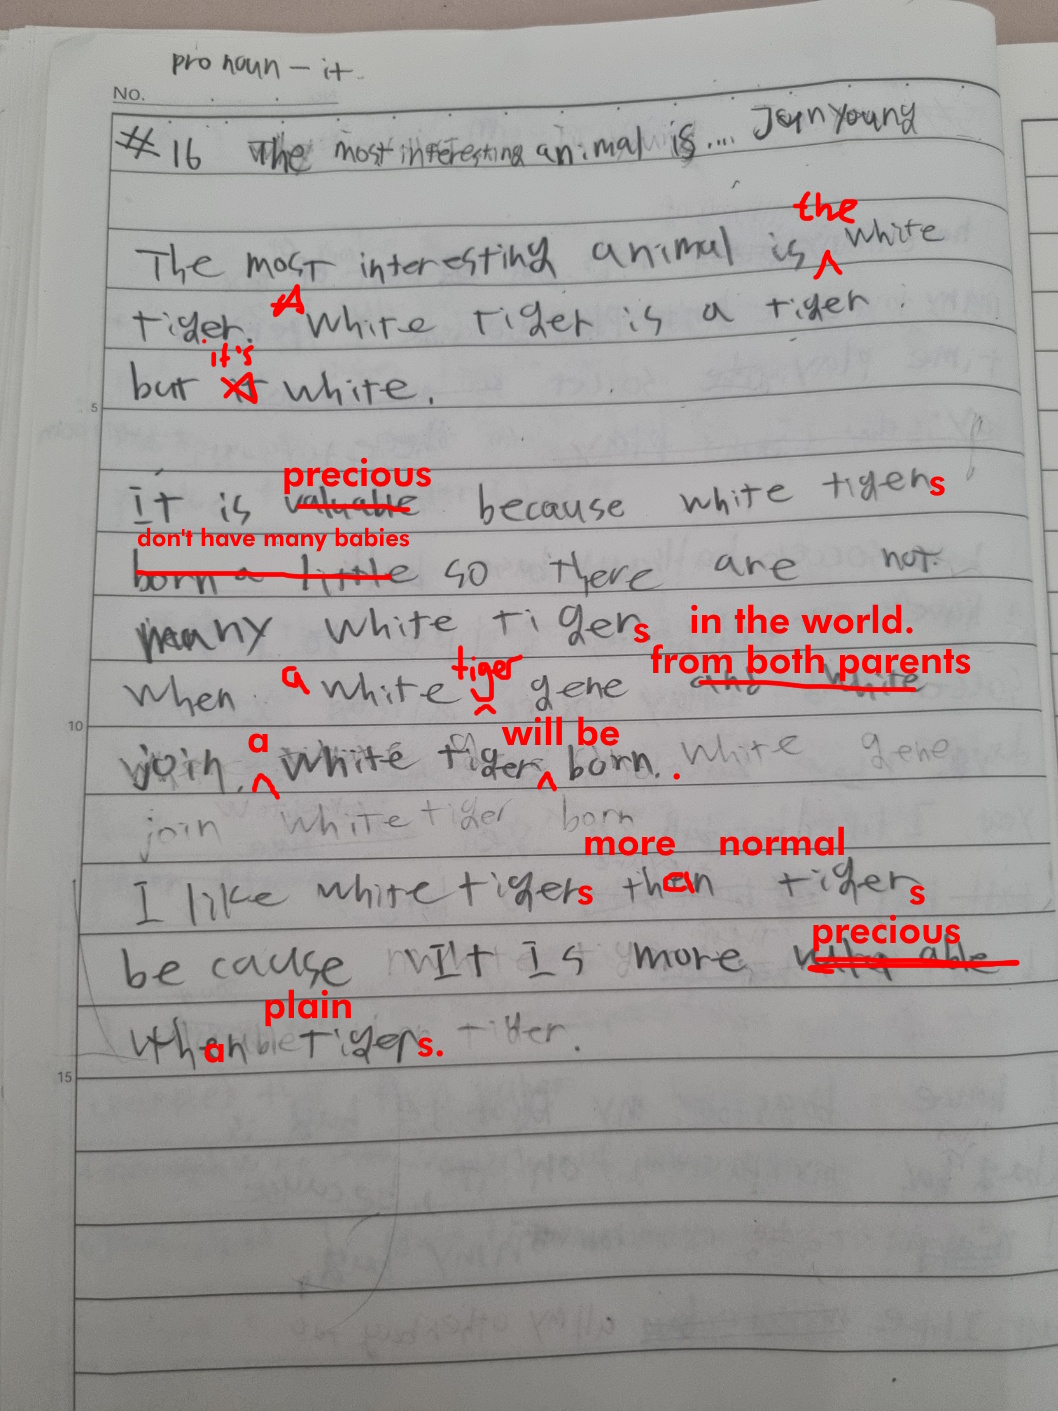 pronoun - it
No.
#16 The most interesting animal is.... JeunYoung
the
The most interesting animal is white
tiger. A White tiger is a tiger.
it's
but it white.
5
precious
it is valuable because white tigers
don't have many babies
born a little so there are not
many white tigers in the world.
tiger from both parents
when a white gene and white
10
a will be
join. white tiger born. . white gene
join white tiger born
more normal
I like white tigers than tigers
precious
because It Is more
plain
than tigers. tiger.
15